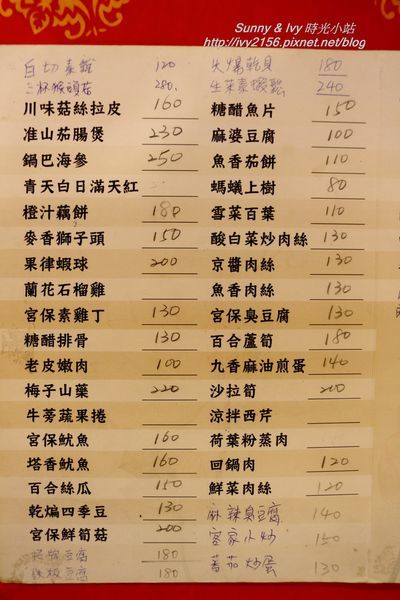 Sunny & Ivy 時光小站
http://ivy2156.pixnet.net/blog
白切素雞 120
三杯猴頭菇 280
川味菇絲拉皮 160
准山茄腸煲 230
鍋巴海參 250
青天白日滿天紅
橙汁藕餅 180
麥香獅子頭 150
果律蝦球 200
蘭花石榴雞
宮保素雞丁 130
糖醋排骨 130
老皮嫩肉 100
梅子山藥 220
牛蒡蔬果捲
宮保魷魚 160
塔香魷魚 160
百合絲瓜 150
乾煸四季豆 130
宮保鮮筍菇 200
豆腐 180
鐵板豆腐 180
火爆乾貝 180
生菜素蝦鬆 240
糖醋魚片 150
麻婆豆腐 100
魚香茄餅 110
螞蟻上樹 80
雪菜百葉 110
酸白菜炒肉絲 130
京醬肉絲 130
魚香肉絲 130
宮保臭豆腐 130
百合蘆筍 180
九香麻油煎蛋 140
沙拉筍 200
涼拌西芹
荷葉粉蒸肉
回鍋肉 120
鮮菜肉絲 120
麻辣臭豆腐 140
客家小炒 150
蕃茄炒蛋 130